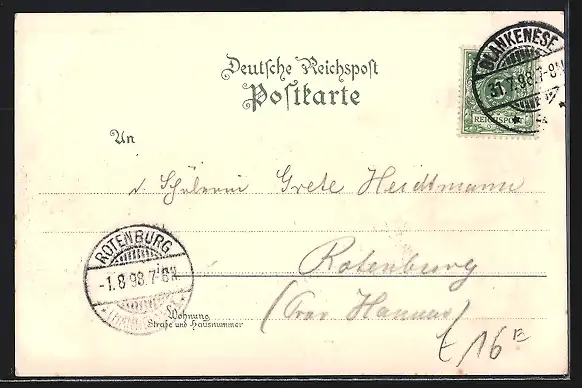 Deutsche Reichspost
Postkarte
BLANKENESE
31.7.98.7-8N.
REICHSPOST
An
d. Schülerin Grete Heidtmann
ROTENBURG
-1.8.98.7-8V.
Rotenburg
(Prov. Hannov.)
Wohnung
Straße und Hausnummer
t/16